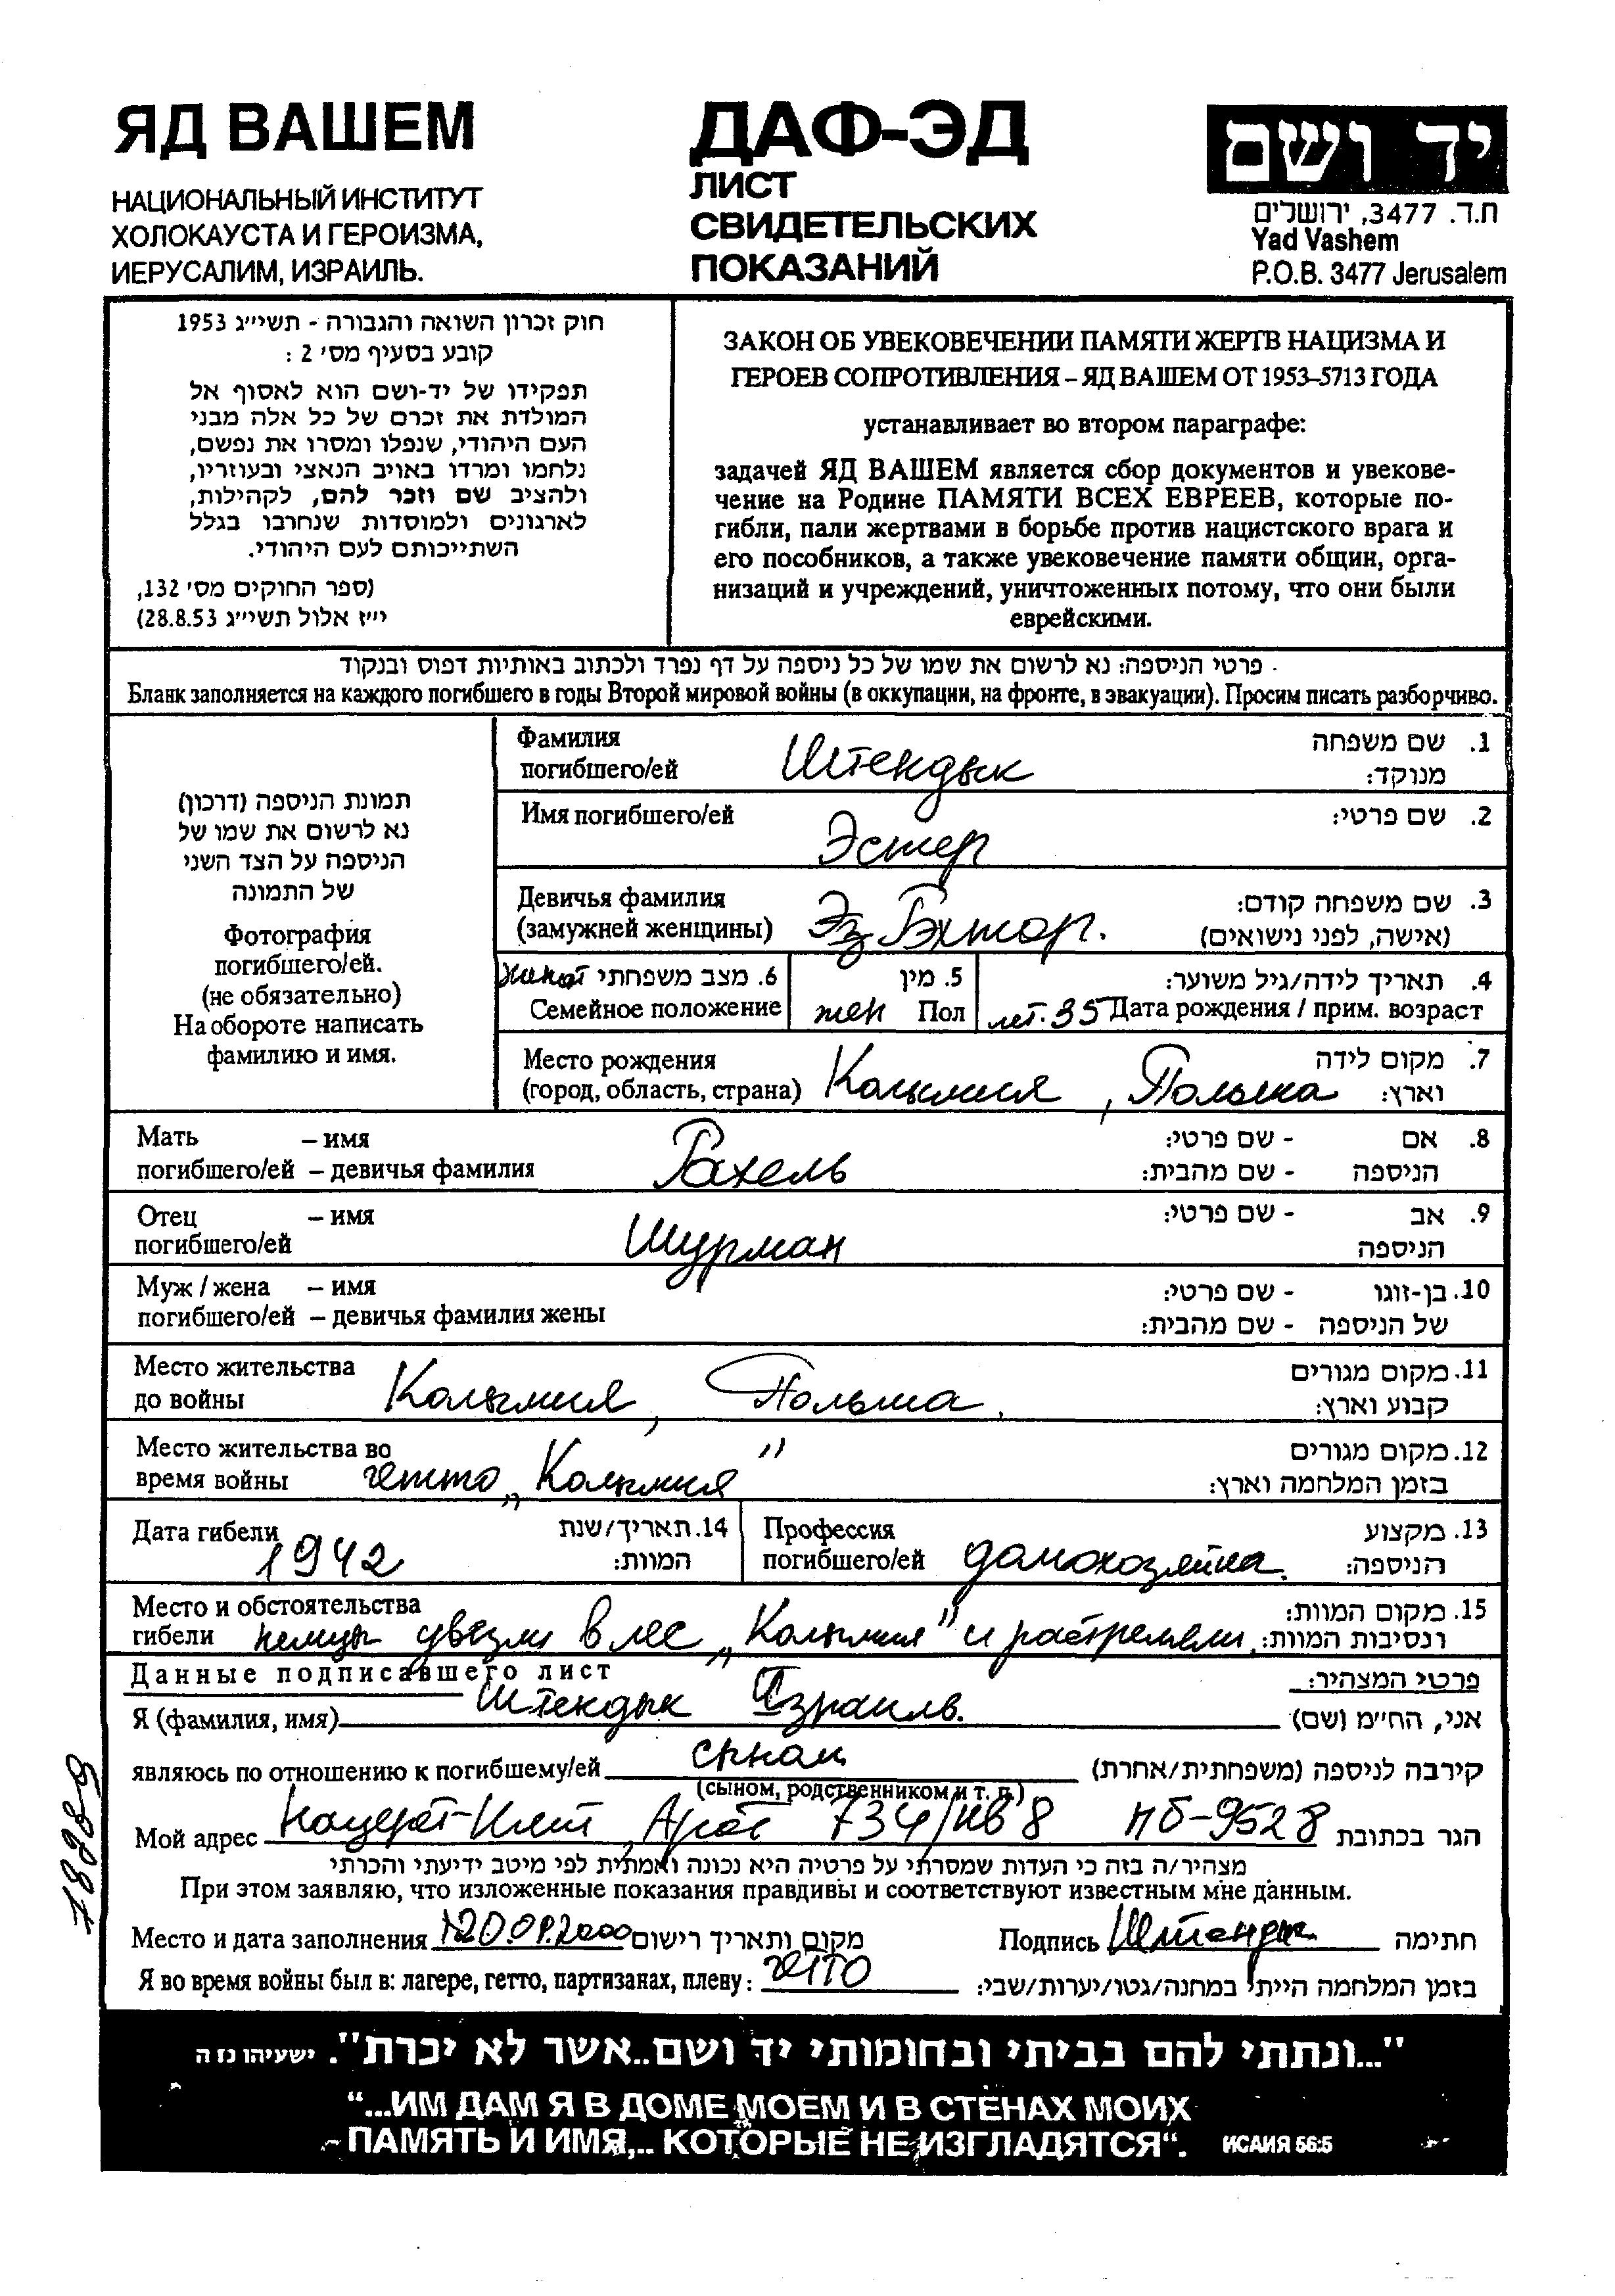 ЯД ВАШЕМ
НАЦИОНАЛЬНЫЙ ИНСТИТУТ
ХОЛОКАУСТА И ГЕРОИЗМА,
ИЕРУСАЛИМ, ИЗРАИЛЬ.
ДАФ-ЭД
ЛИСТ
СВИДЕТЕЛЬСКИХ
ПОКАЗАНИЙ
יד ושם
ת.ד. 3477, ירושלים
Yad Vashem
P.O.B. 3477 Jerusalem
חוק זכרון השואה והגבורה - תשי״ג 1953
קובע בסעיף מס׳ 2 :
תפקידו של יד-ושם הוא לאסוף אל
המולדת את זכרם של כל אלה מבני
העם היהודי, שנפלו ומסרו את נפשם,
נלחמו ומרדו באויב הנאצי ובעוזריו,
ולהציב שם וזכר להם, לקהילות,
לארגונים ולמוסדות שנחרבו בגלל
השתייכותם לעם היהודי.
(ספר החוקים מס׳ 132,
י״ז אלול תשי״ג 28.8.53)
ЗАКОН ОБ УВЕКОВЕЧЕНИИ ПАМЯТИ ЖЕРТВ НАЦИЗМА И
ГЕРОЕВ СОПРОТИВЛЕНИЯ – ЯД ВАШЕМ ОТ 1953–5713 ГОДА
устанавливает во втором параграфе:
задачей ЯД ВАШЕМ является сбор документов и увекове-
чение на Родине ПАМЯТИ ВСЕХ ЕВРЕЕВ, которые по-
гибли, пали жертвами в борьбе против нацистского врага и
его пособников, а также увековечение памяти общин, орга-
низаций и учреждений, уничтоженных потому, что они были
еврейскими.
פרטי הניספה: נא לרשום את שמו של כל ניספה על דף נפרד ולכתוב באותיות דפוס ובנקוד
Бланк заполняется на каждого погибшего в годы Второй мировой войны (в оккупации, на фронте, в эвакуации). Просим писать разборчиво.
תמונת הניספה (דרכון)
נא לרשום את שמו של
הניספה על הצד השני
של התמונה
Фотография
погибшего/ей.
(не обязательно)
На обороте написать
фамилию и имя.
Фамилия Штендык 1. שם משפחה
погибшего/ей מנוקד:
Имя погибшего/ей Эстер 2. שם פרטי:
Девичья фамилия 3. שם משפחה קודם:
(замужней женщины) (אישה, לפני נישואים)
6. מצב משפחתי 5. מין 4. תאריך לידה/גיל משוער:
Семейное положение жен Пол лет. 35 Дата рождения / прим. возраст
Место рождения 7. מקום לידה
(город, область, страна) Колымия, Польша וארץ:
Мать – имя Рахель 8. אם - שם פרטי:
погибшего/ей – девичья фамилия הניספה - שם מהבית:
Отец – имя Шурман 9. אב - שם פרטי:
погибшего/ей הניספה
Муж / жена – имя 10. בן-זוגו - שם פרטי:
погибшего/ей – девичья фамилия жены של הניספה - שם מהבית:
Место жительства 11. מקום מגורים
до войны Колымия, Польша. קבוע וארץ:
Место жительства во 12. מקום מגורים
время войны гетто „Колымия" בזמן המלחמה וארץ:
Дата гибели 1942 14. תאריך/שנת Профессия 13. מקצוע
המוות: погибшего/ей домохозяйка. הניספה:
Место и обстоятельства 15. מקום המוות:
гибели немцы увезли в лес „Колымия" и растреляли. ונסיבות המוות:
Данные подписавшего лист פרטי המצהיר:
Я (фамилия, имя) Штендык Израиль. אני, הח״מ (שם)
являюсь по отношению к погибшему/ей сыном קירבה לניספה (משפחתית/אחרת)
(сыном, родственником и т. п.)
Мой адрес Нацерет-Илит, 734/кв 8 הגר בכתובת
מצהיר/ה בזה כי העדות שמסרתי על פרטיה היא נכונה ואמתית לפי מיטב ידיעתי והכרתי
При этом заявляю, что изложенные показания правдивы и соответствуют известным мне данным.
Место и дата заполнения 20.01.2000 מקום ותאריך רישום Подпись Штендык חתימה
Я во время войны был в: лагере, гетто, партизанах, плену: гетто בזמן המלחמה הייתי במחנה/גטו/יערות/שבי:
"...ונתתי להם בביתי ובחומותי יד ושם..אשר לא יכרת". ישעיהו נז ה
“...ИМ ДАМ Я В ДОМЕ МОЕМ И В СТЕНАХ МОИХ
ПАМЯТЬ И ИМЯ,.. КОТОРЫЕ НЕ ИЗГЛАДЯТСЯ“. ИСАИЯ 56:5